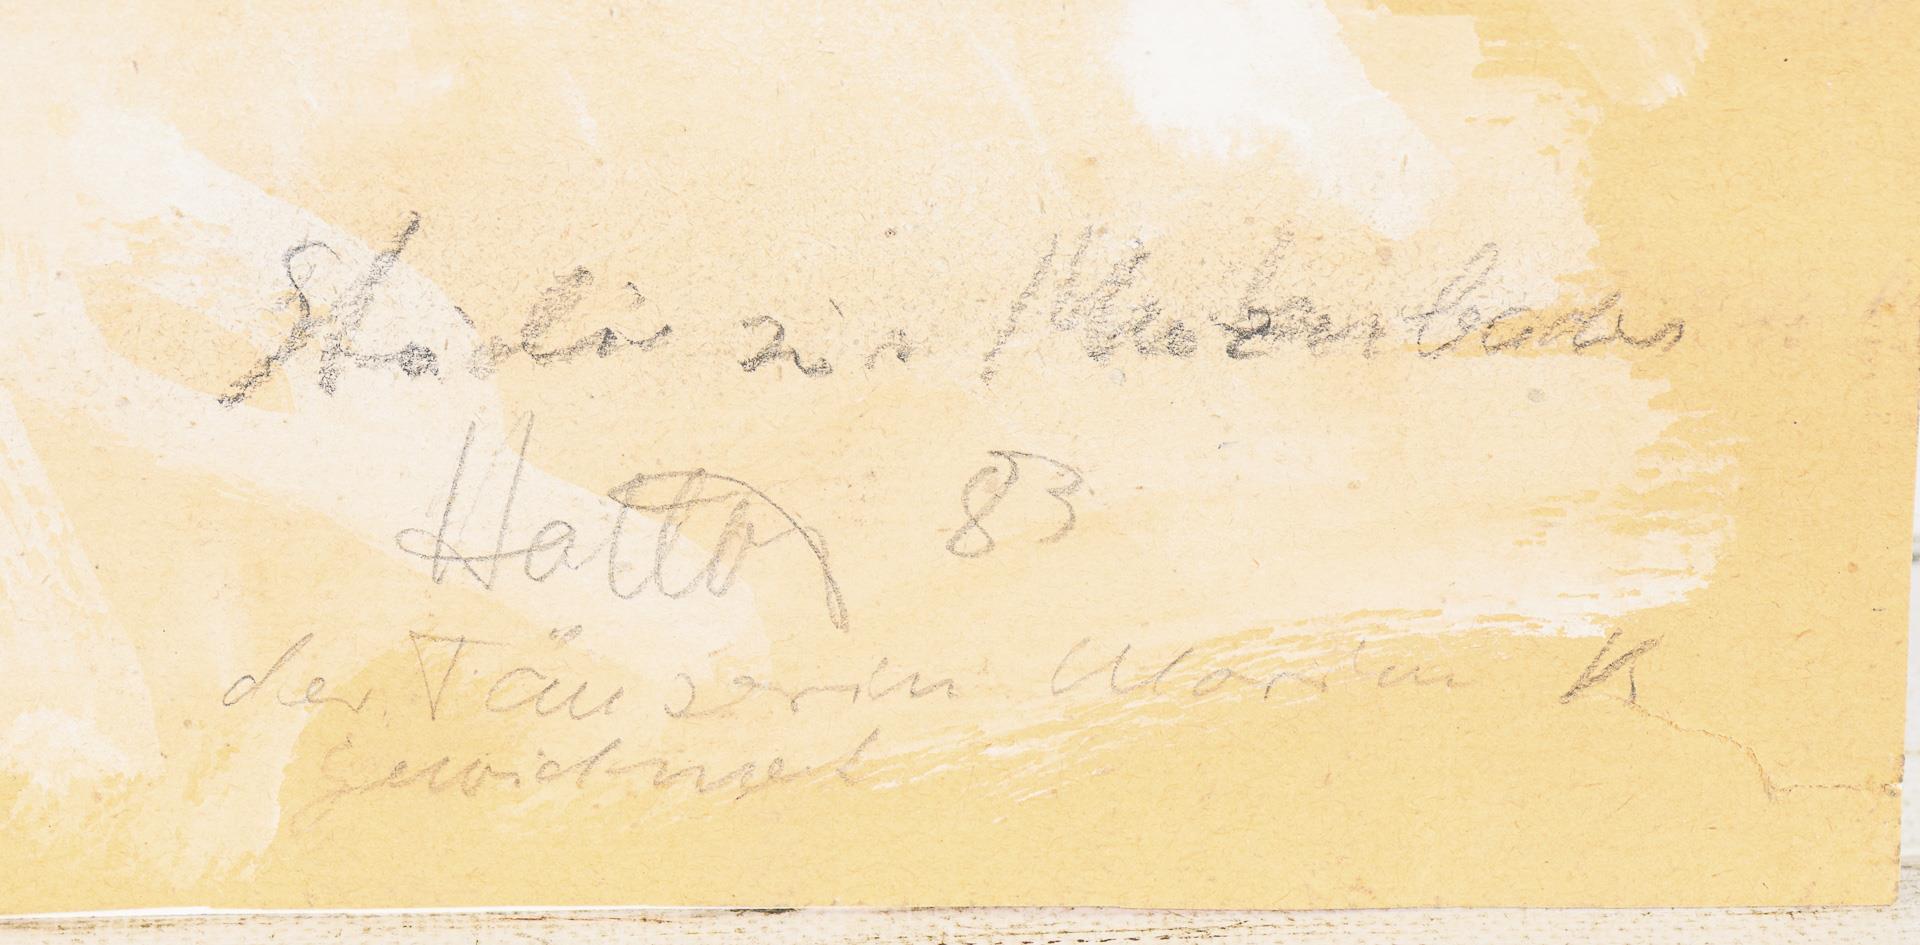 Studie zur
Hattop 83
der Tänzerin Marion K
gewidmet